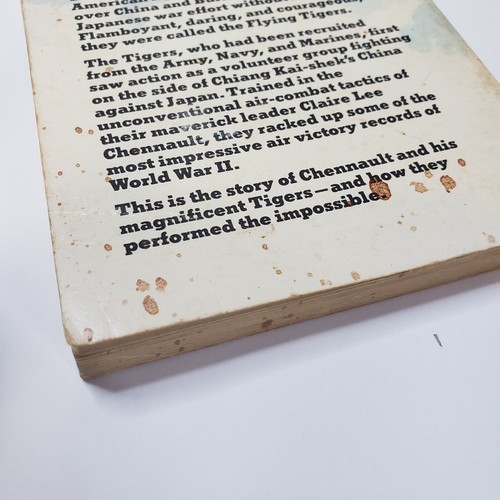 American
over China and Bu
Japanese war effort without
Flamboyant, daring, and courageous,
they were called the Flying Tigers.
The Tigers, who had been recruited
from the Army, Navy, and Marines, first
saw action as a volunteer group fighting
on the side of Chiang Kai-shek's China
against Japan. Trained in the
unconventional air-combat tactics of
their maverick leader Claire Lee
Chennault, they racked up some of the
most impressive air victory records of
World War II.
This is the story of Chennault and his
magnificent Tigers—and how they
performed the impossible.